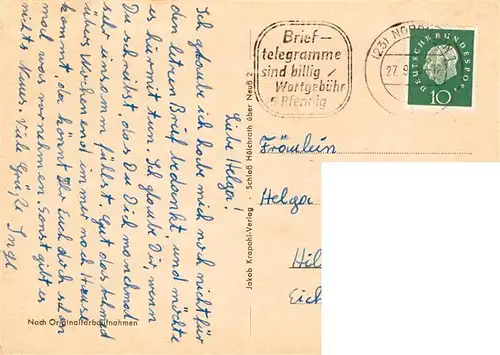 Liebe Helga!
Ich glaube ich habe mich noch nicht für
den letzen Brief bedankt, und möchte
es hiermit tun. Ich glaube Dir, wenn
Du schreibst, das Du Dich manchmal
sehr einsam fühlst. Gut das Ahmed
übers Wochenend immer nach Hause
kommt, da könnt Ihr Euch dich schon
mal was vornehmen. Sonst gibt es
nichts Neues. Viele Grüße Inge
Nach Originalfarbaufnahmen
Jakob Krapohl-Verlag · Schloß Hülchrath über Neuß 2
Brief-
telegramme
sind billig
Wortgebühr
5 Pfennig
(23) NORD
27. 9.
DEUTSCHE BUNDESPOST
10
Fräulein
Helga
Hil
Eich